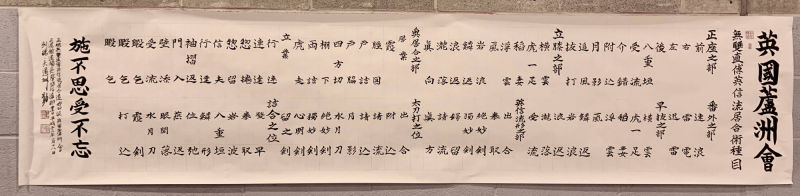 英國蘆洲會
無雙直傳英信流居合術種目
正座之部 番外之部
前 速浪
右 雷電
左 迅雷
後 早抜之部
八重垣 横雲
受流 虎一足
介錯 稲妻
付込 浮雲
月影 颪
追風 鱗返
抜打 岩浪
立膝之部 浪返
横雲 瀧落
虎一足 受流
稲妻 英信流形之部
浮雲 出合
颪 拳取
岩浪 絶妙剣
鱗返 獨妙剣
浪返 鍔留
瀧落 請流
真向 真方
奥居合之部 太刀打之位
居業 出合
霞 附込
脛囲 請流
戸詰 請込
戸脇 月影
四方切 水月刀
棚下 絶妙剣
両詰 獨妙剣
虎走 心明剣
立業 打込
行連 詰合之位
連達 發早
惣捲 拳取
惣留 岩波
信夫 八重垣
行違 鱗形
袖摺返 位弛
門入 燕返
壁添 眼関落
受流 水月刀
暇乞 霞剣
暇乞 打込
暇乞
施不思受不忘